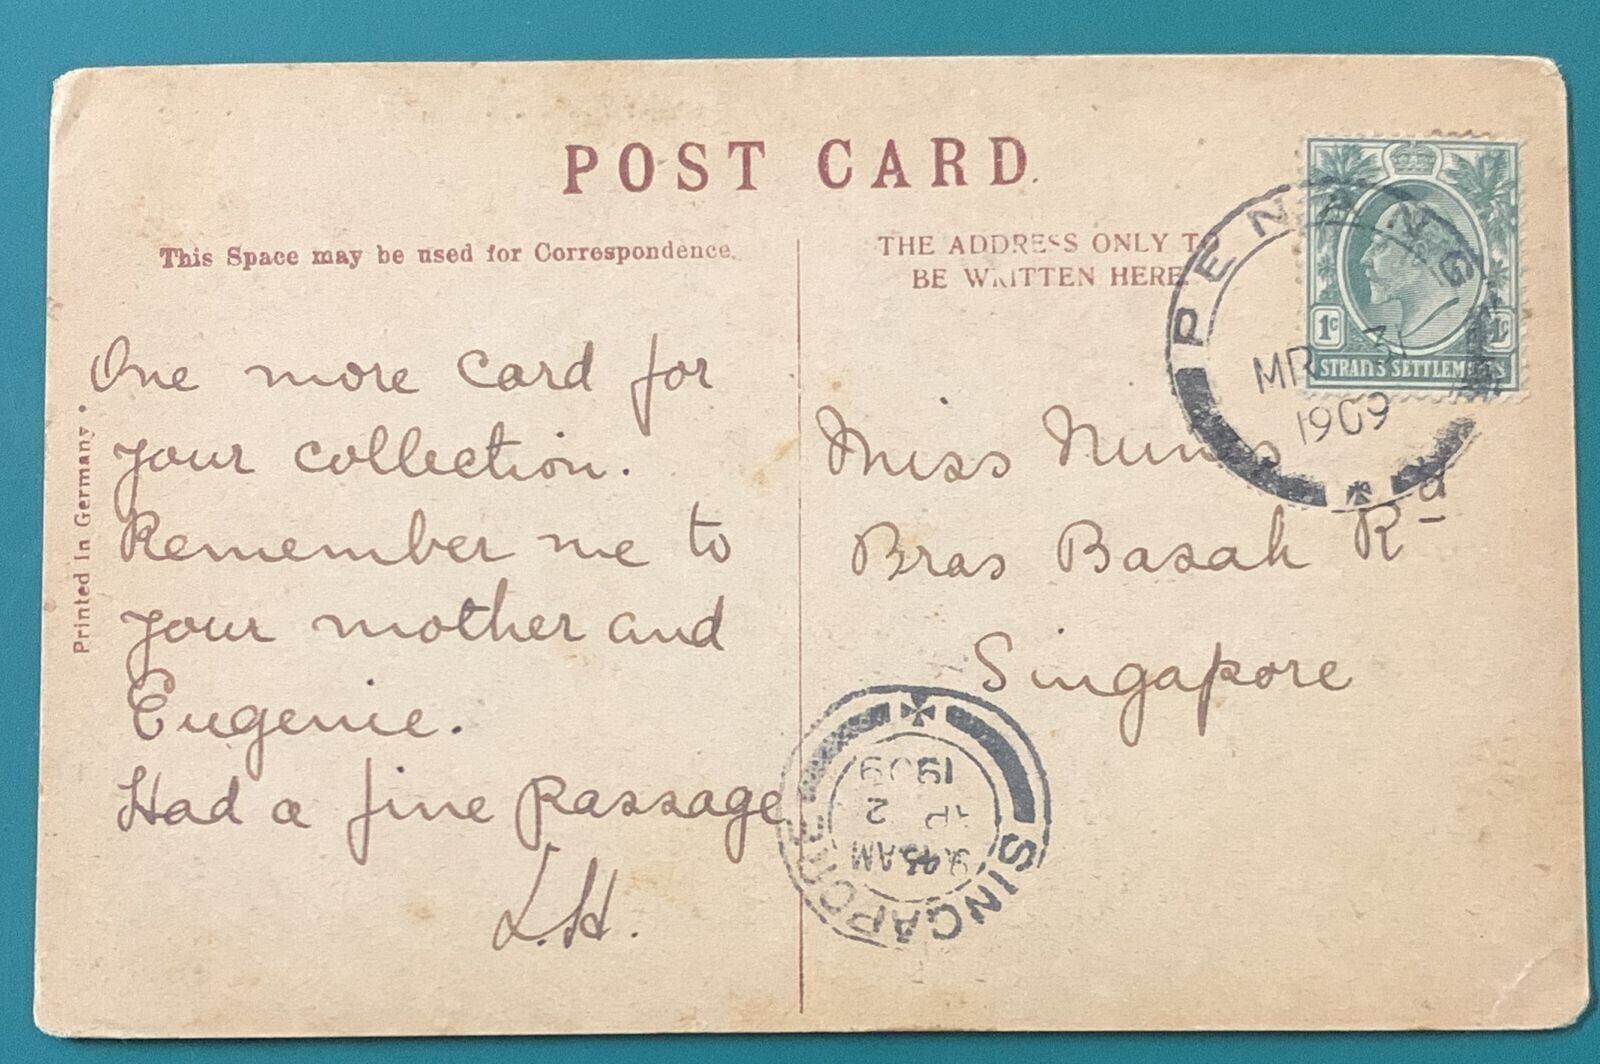 POST CARD.
This Space may be used for Correspondence.
THE ADDRESS ONLY TO
BE WRITTEN HERE.
One more card for
your collection.
Remember me to
your mother and
Eugenie.
Had a fine passage
L.H.
Printed in Germany.
Miss Nunes
Bras Basah Rd
Singapore
PENANG
MR 31
1909
1c 1c
STRAITS SETTLEMENTS
SINGAPORE
9.45AM
AP 2
1909